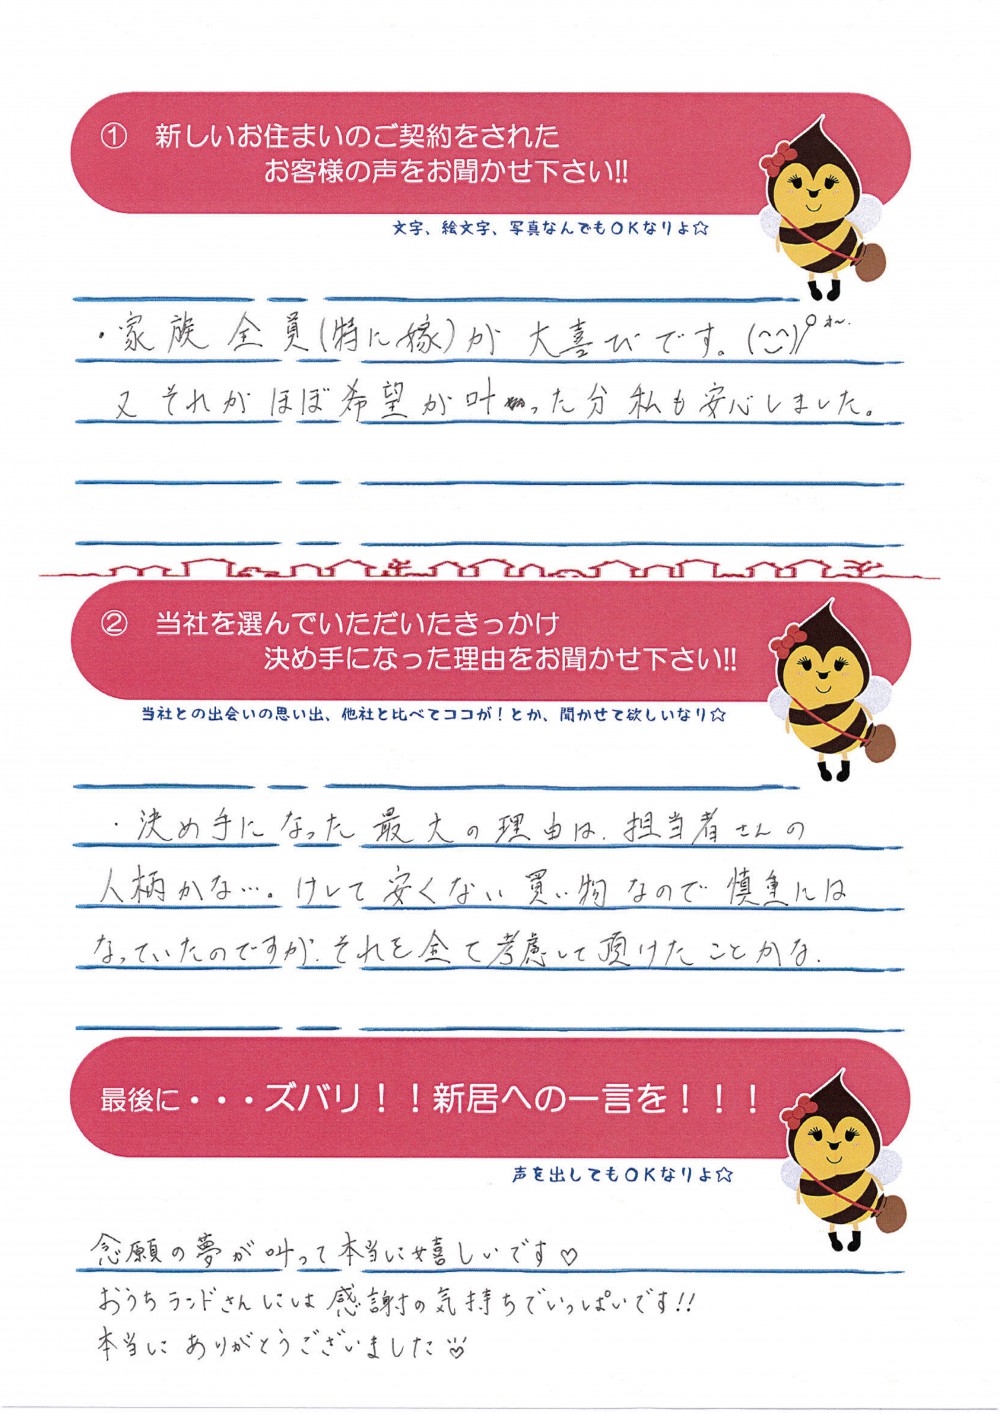 ① 新しいお住まいのご契約をされた
お客様の声をお聞かせ下さい!!
文字、絵文字、写真なんでもOKなりよ☆
・家族全員(特に嫁)が大喜びです。(^^)
又それがほぼ希望が叶った分私も安心しました。
② 当社を選んでいただいたきっかけ
決め手になった理由をお聞かせ下さい!!
当社との出会いの思い出、他社と比べてココが!とか、聞かせて欲しいなり☆
・決め手になった最大の理由は、担当者さんの
人柄かな…。けして安くない買い物なので慎重には
なっていたのですが、それを全て考慮して頂けたことかな、
最後に・・・ズバリ!!新居への一言を!!!
声を出してもOKなりよ☆
念願の夢が叶って本当に嬉しいです♡
おうちランドさんには感謝の気持ちでいっぱいです!!
本当にありがとうございました